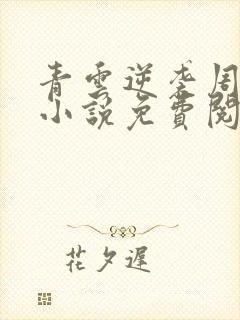 青雲逆袭周
小說免費閱
花夕遲